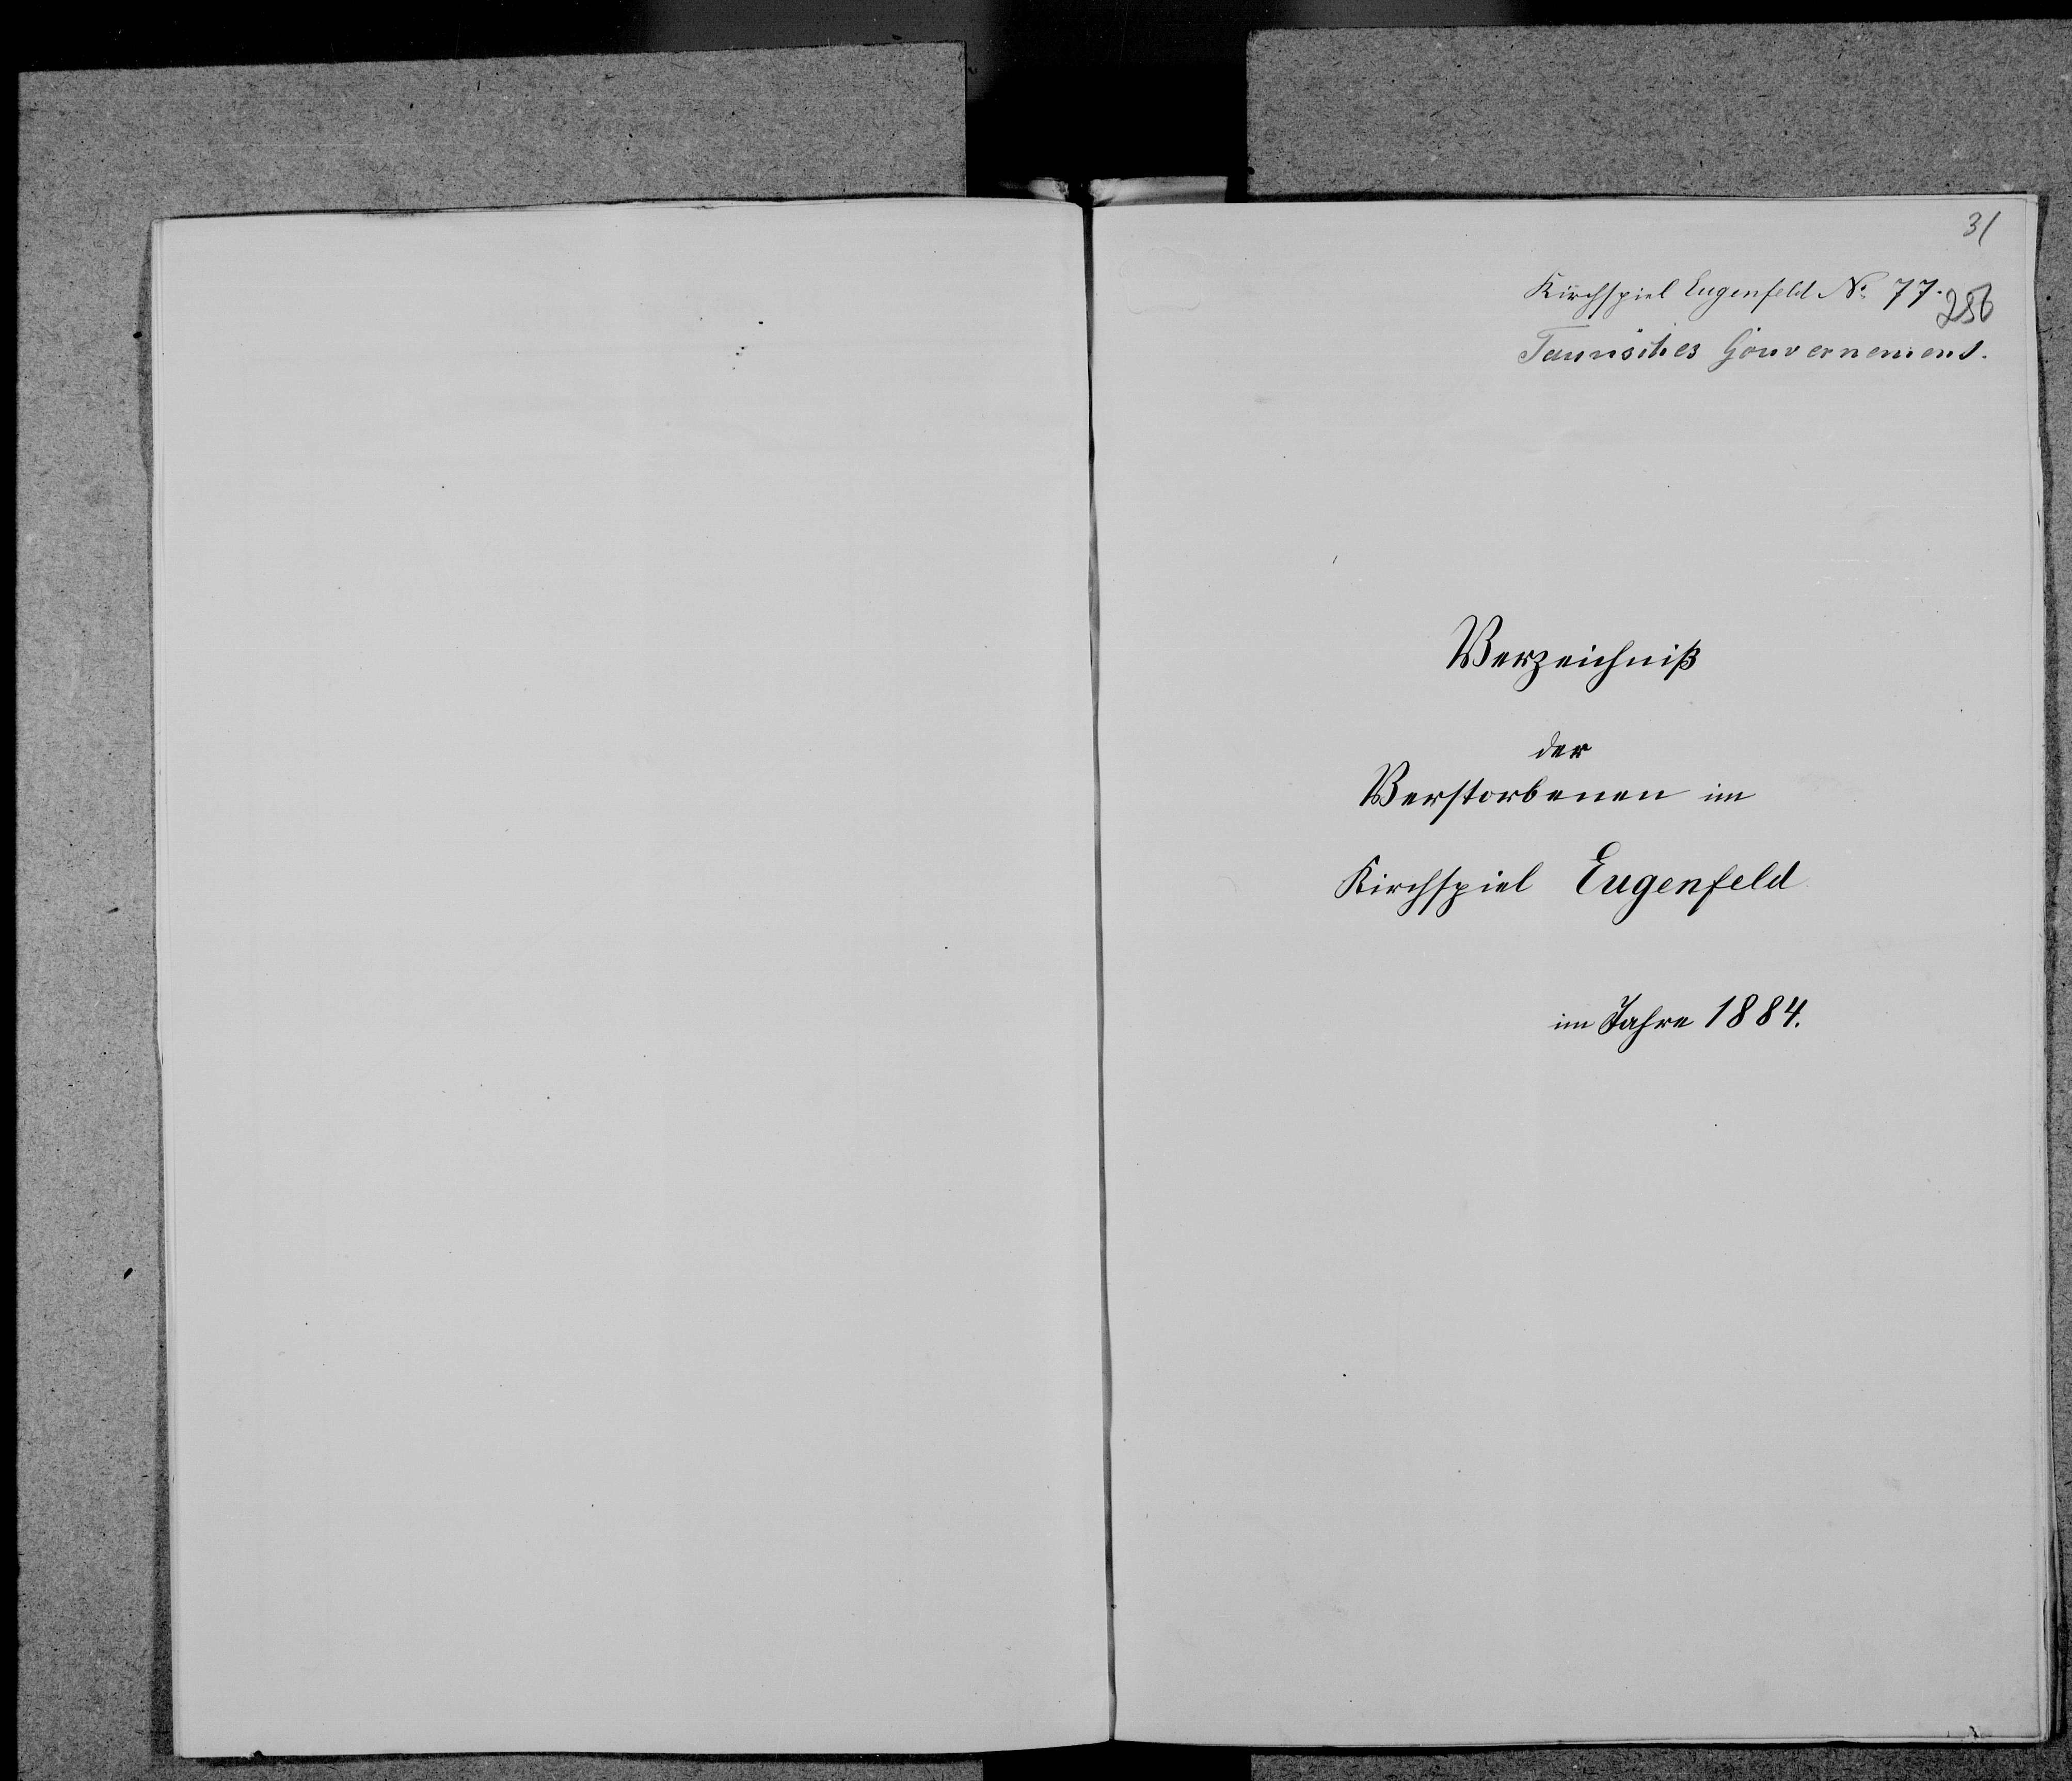 31
Kirchspiel Eugenfeld No. 77.
256
Taurisches Gouvernement.
Verzeichniß
der
Verstorbenen im
Kirchspiel Eugenfeld
im Jahre 1884.